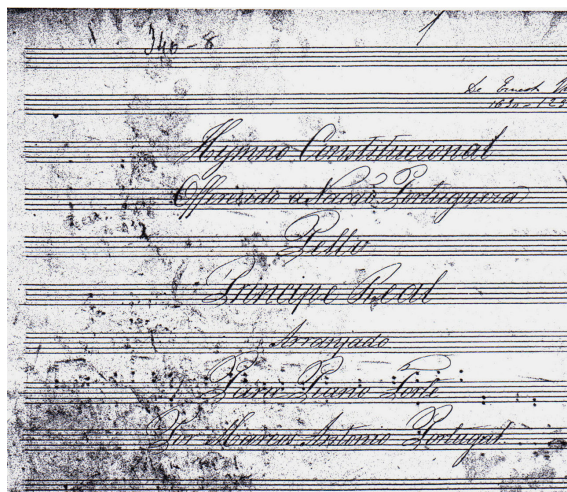 340-8 1
de Ernesto
1630-123
Hymno Constitucional
Offerecido a Nação Portugueza
Pello
Principe Real
Arranjado
Para Piano Forte
Por Marcos Antonio Portugal